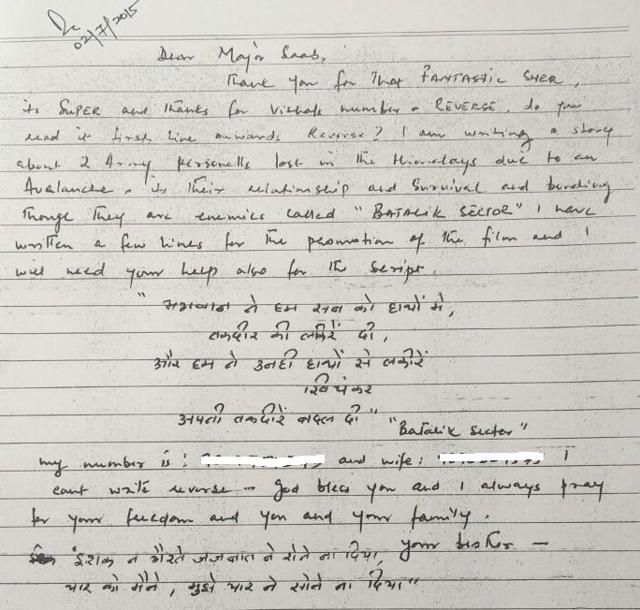 02/7/2015
Dear Major Saab,
Thank you for that FANTASTIC SHER,
its SUPER and thanks for Vishals number. REVERSE, do you
read it first line onwards Reverse? I am writing a story
about 2 Army personells lost in the Himalays due to an
Avalanche. its their relationship and Survival and bonding
though they are enemies called "BATALIK SECTOR" I have
written a few lines for the promotion of the film and I
will need your help also for the script.
"भगवान ने हम सब को हाथों में,
तकदीर की लकीरें दी,
और हम ने उनही हाथों से लकीरें
खिचकर
अपनी तकदीरें बदल दी"
"Batalik Sector"
my number is: and wife: I
cant write reverse – God bless you and I always pray
for your freedom and you and your family.
your brother –
इशक न गैरते जजबात ने रोने ना दिया,
यार को मैंने, मुझे यार ने सोने ना दिया"